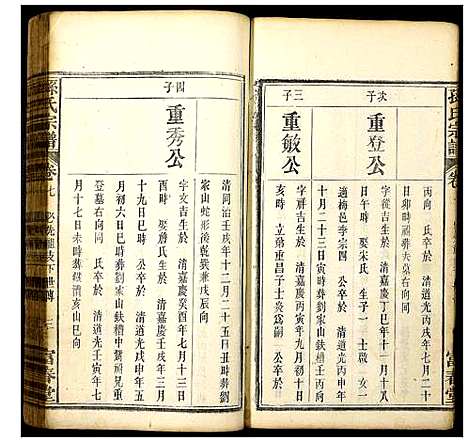 孫氏宗譜
卷
富春堂
丙向 氏卒於 清光丙戌年七月二十
日卯時歸葬夫墓右向同
次子
重登公
字從吉生於 清嘉慶丁巳年十一月十八
日午時 娶宋氏 生子一 士啟 女一
適梅邑李宗四 公卒於 清道光丙申年
二月二十三日寅時葬劉家山鈇槽中
三子
重敏公
字祥吉生於 清嘉慶丙寅年九月初十
亥時 立弟重昌子士炎為嗣 公卒於
清同治壬戌年十二月二十五日丑時葬劉
家山蛇形後乾巽兼戌辰向
四子
重秀公
字文吉生於 清嘉慶 酉年七月十三日
酉時 娶詹氏生於 清嘉慶 年三月二
十九日巳時 公卒於 清道光戊申年五
月初六日巳時葬劉家山鈇槽中 祖兄重
登墓右向同 氏卒於 清道光壬寅年七
月十七日未時葬 清 亥山巳向
孫氏宗譜
卷七
下世 三
富春堂